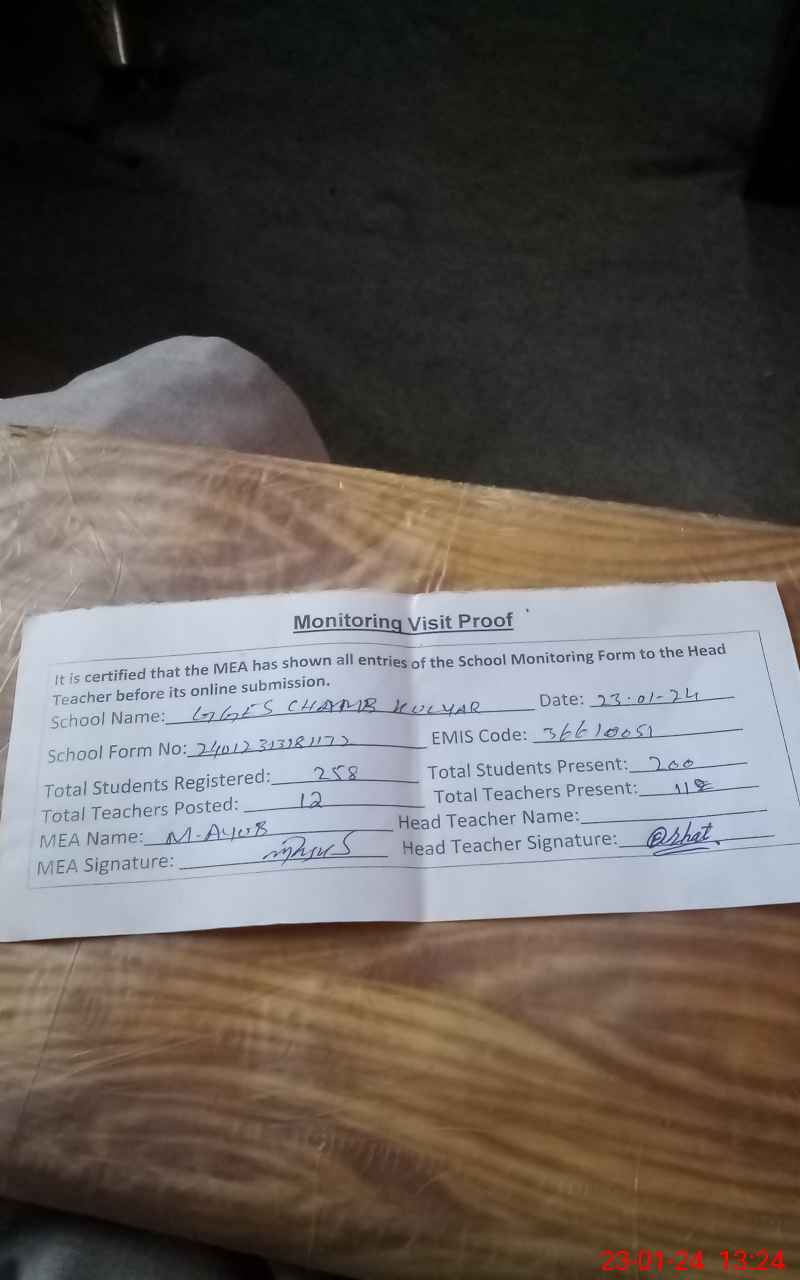 Monitoring Visit Proof
It is certified that the MEA has shown all entries of the School Monitoring Form to the Head
Teacher before its online submission.
School Name: GGES CHAMB KULYAR Date: 23-01-24
School Form No: EMIS Code: 36610051
Total Students Registered: 258 Total Students Present: 200
Total Teachers Posted: 12 Total Teachers Present:
MEA Name: M-AYUB Head Teacher Name:
MEA Signature: Head Teacher Signature:
23-01-24 13:24